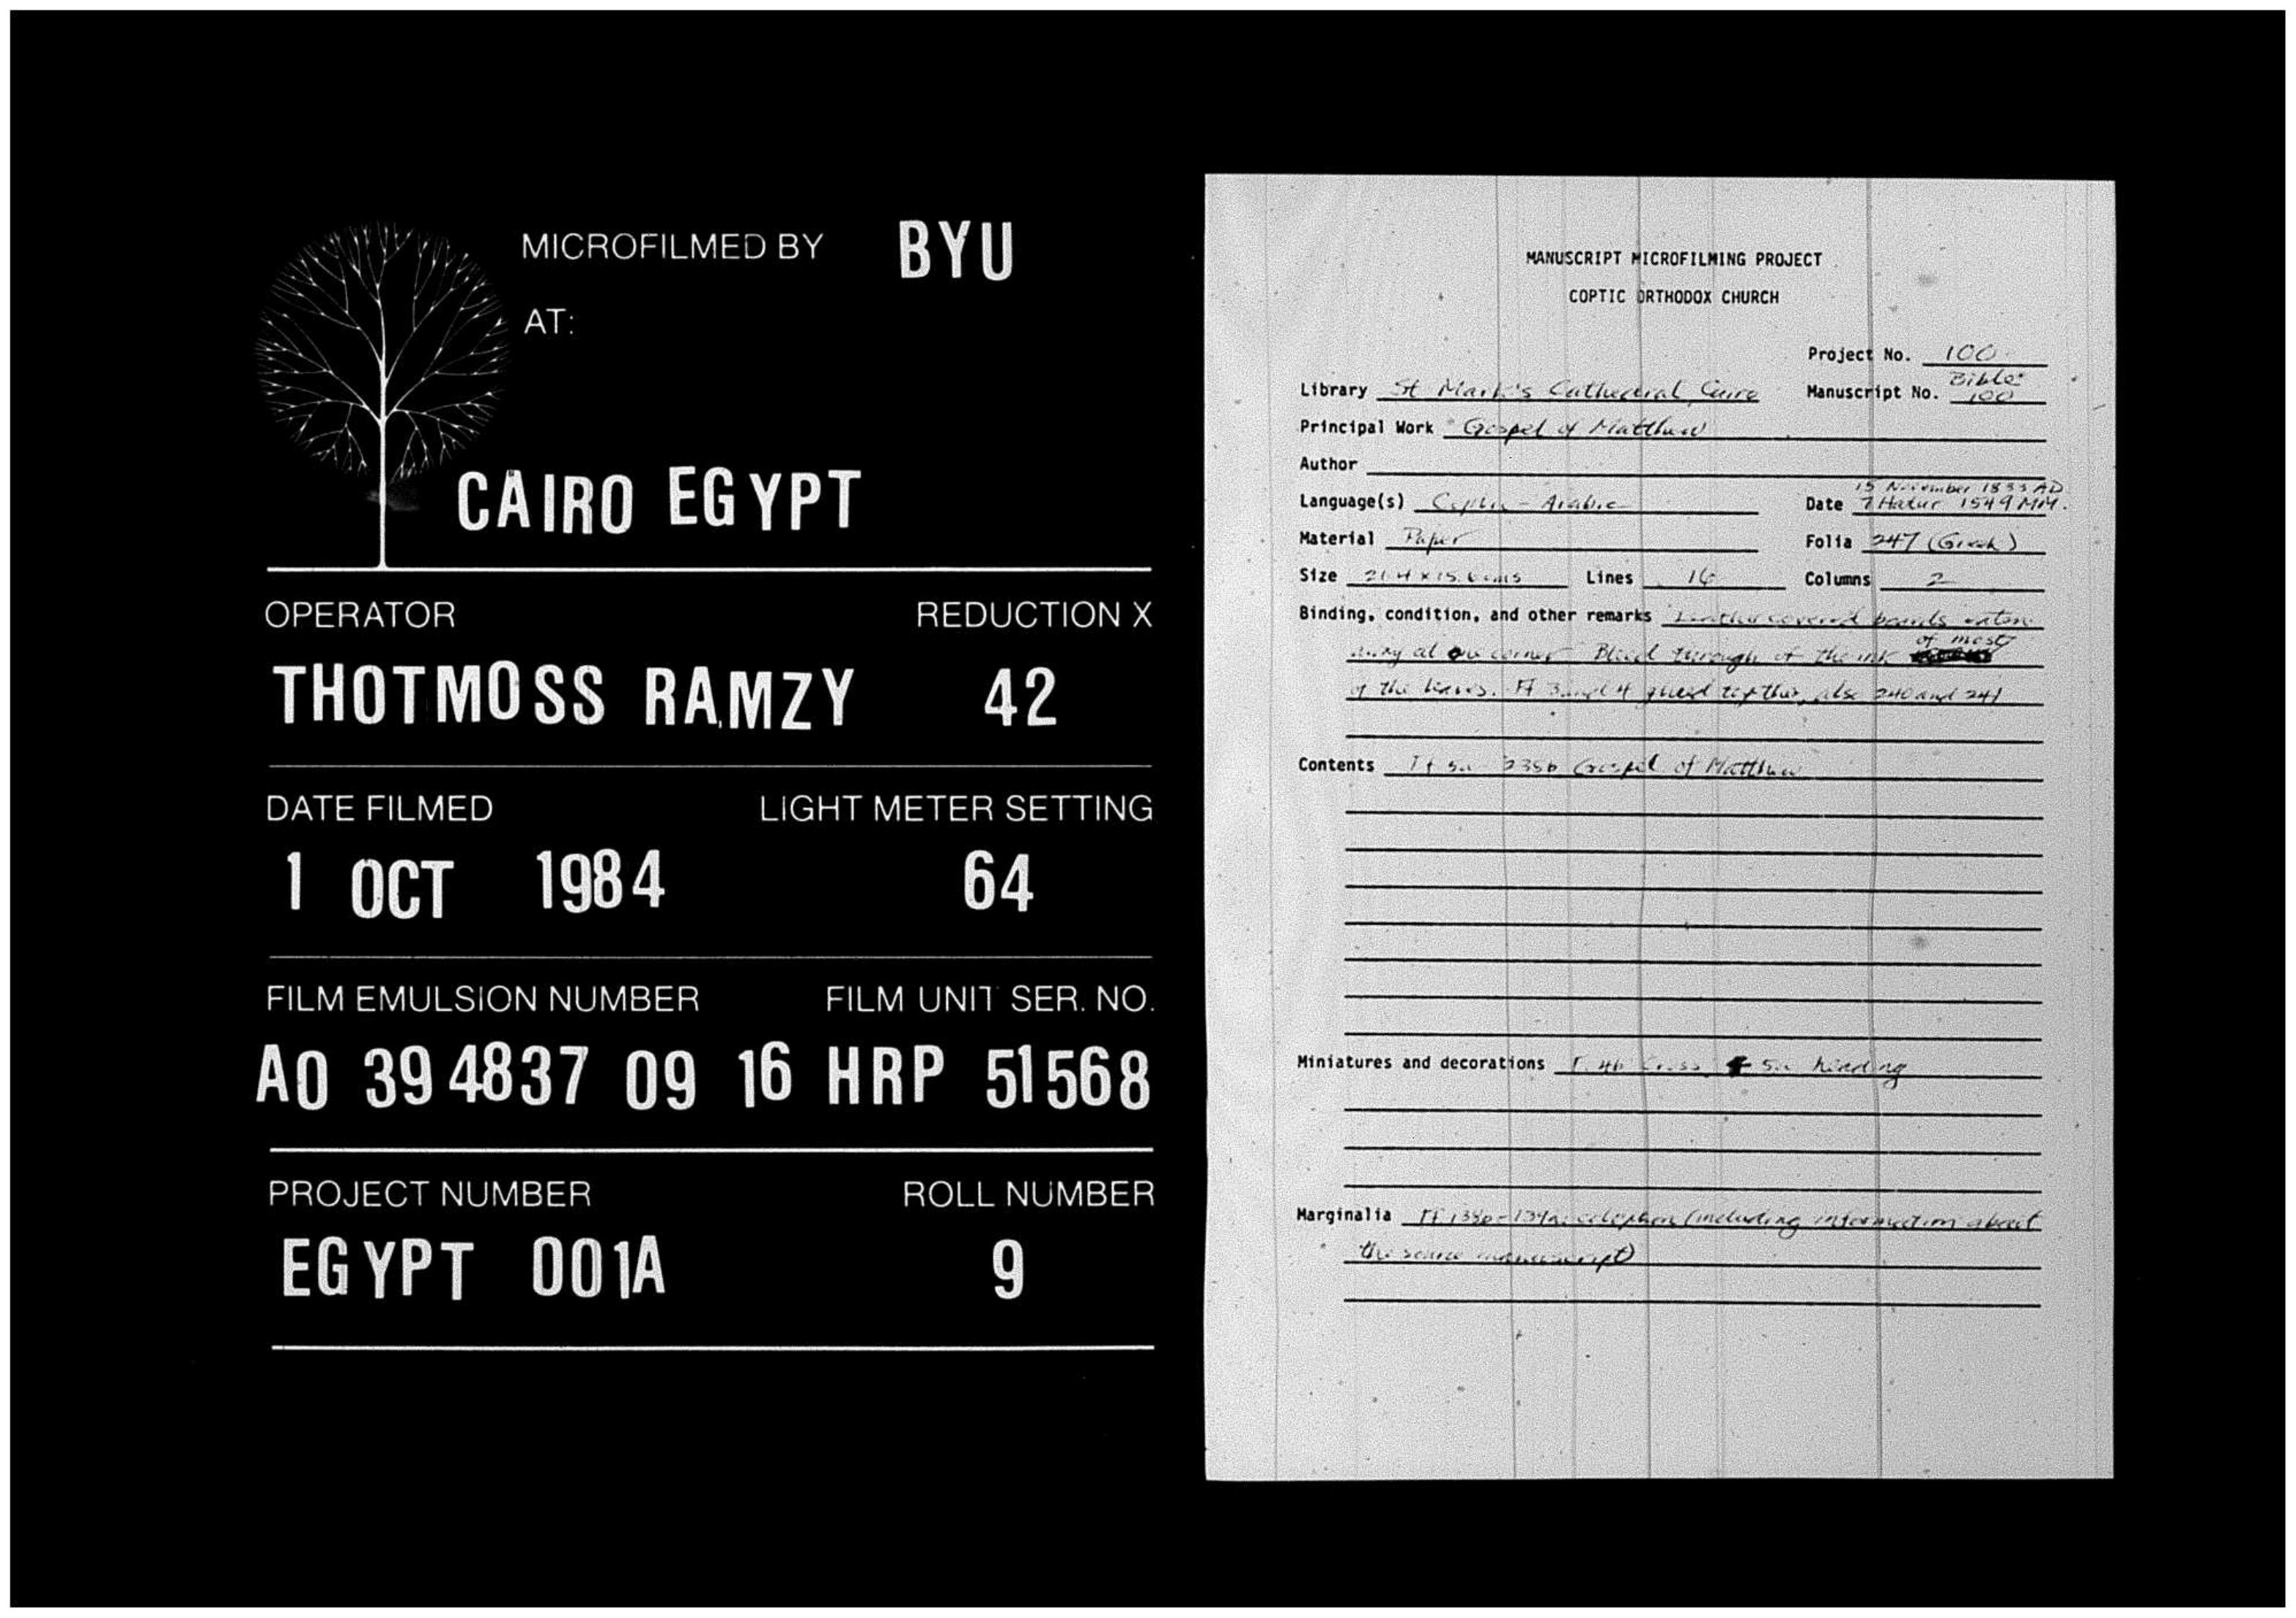 MICROFILMED BY BYU
AT:
CAIRO EGYPT
OPERATOR REDUCTION X
THOTMOSS RAMZY 42
DATE FILMED LIGHT METER SETTING
1 OCT 1984 64
FILM EMULSION NUMBER FILM UNIT SER. NO.
A0 39 4837 09 16 HRP 51568
PROJECT NUMBER ROLL NUMBER
EGYPT 001A 9
MANUSCRIPT MICROFILMING PROJECT
COPTIC ORTHODOX CHURCH
Project No. 100
Library St Mark's Cathedral, Cairo Manuscript No. Bible 100
Principal Work Gospel of Matthew
Author
15 November 1833 AD
Language(s) Coptic - Arabic Date 7 Hatur 1549 MM.
Material Paper Folia 247 (Greek)
Size 21.4 x 15.6 cms Lines 16 Columns 2
Binding, condition, and other remarks Leather covered boards eaten
away at one corner Bleed through of the ink of most
of the leaves. Ff 3 and 4 glued together, also 240 and 241
Contents Ff 5a - 235b Gospel of Matthew
Miniatures and decorations F. 4b Cross, 5a heading
Marginalia Ff 138b-139a: colophon (including information about
the source manuscript)